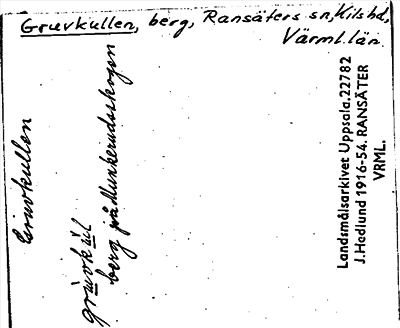 Gruvkullen, berg, Ransäters sn, Kils hd,
Värml. län.
Gruvkullen
gruvkúl
berg på Munkerudsskogen
Landsmålsarkivet Uppsala. 22782
J. Hedlund 1916-54. RANSÄTER
VRML.